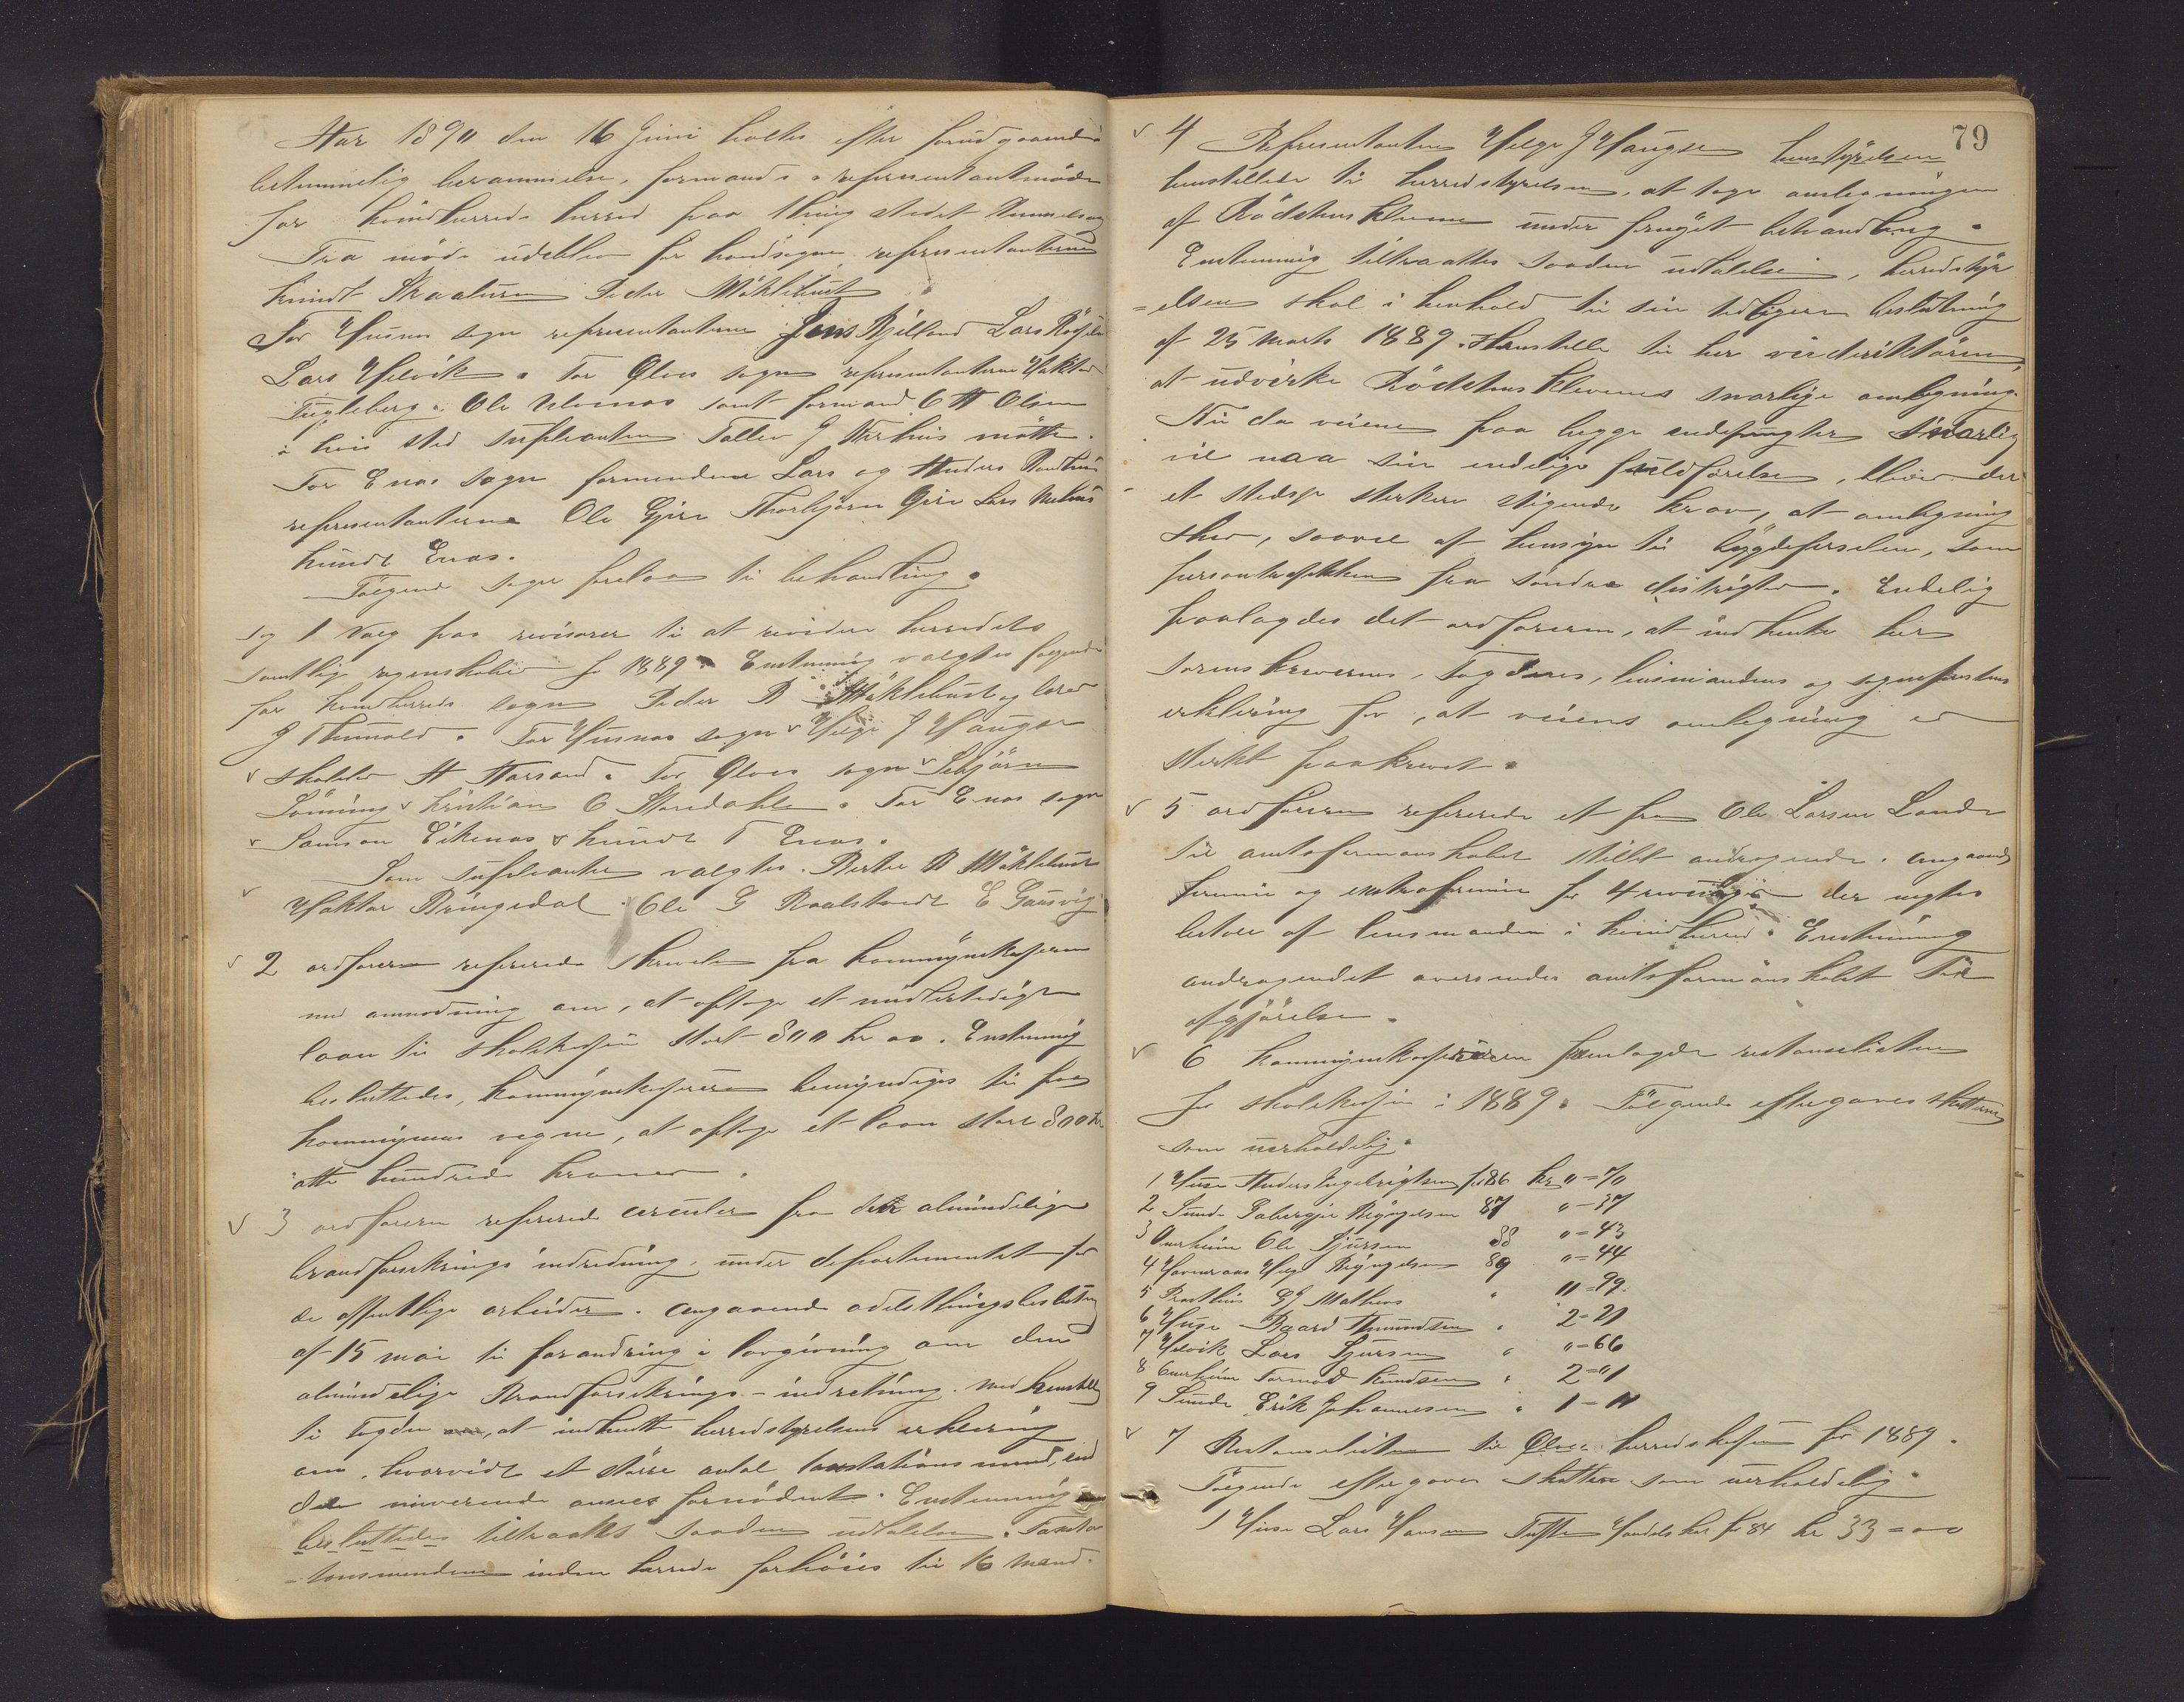 Aar 1890 den 16 Juni holtes efter forudgaaende
betimmelig berammelse, formands & representantmøde
for Kvindherreds herred paa thing stedet Ummelsvaag
Fra møde udeblev for hovedsogne representanterne
Knudt Skaaluren Peder Mÿklebust
For Husnes sogn representanterne Jens Kjelland Lars
Lars Helvik. For Ølves sogn representanterne Haktor
Fugleberg. Ole samt formand O A Olsen
i hvis sted supleanten Tollev J mötte.
For Enæs sogn formendene Lars og Anders Sundhus
representanterne Ole Gjere Thorbjørn Gjere Lars
Knudt Enæs.
Følgende sager forelaa til behandling.
Sag 1 Valg paa revisorer til at revidere herredets
samtlige regenskaber for 1889. Enstemmig valgtes følgende
for Kvindherreds sogn Peder B Mÿklebust og
G Thuvold. For Husnæs sogn Helge J Haugse
skoleler A Aarsand. For Ølves sogn
Lönning Kristian O Storedahle. For Enæs sogn
Samson Eikenæs & Knudt T Enæs.
Som supleanter valgtes. B Mÿklebust
Haktor Bringedal Ole G Raalstvedt E Gausvig
2 ordføreren refererede skrivelse fra kommÿnekassereren
med anmodning om, at optage et midlertidigt
laan til skolekassen stort 800 kr 00. Enstemmig
besluttedes, kommÿnekassereren bemÿndiges til paa
kommÿnens vegne, at optage et laan stort 800 kr
otte hundrede kroner.
3 ordføreren refererede circulær fra den almindelige
brandforsikrings indredning, under departementet for
de offentlige arbeider. angaaende odelsthingsbeslutning
af 15 mai til forandring i lovgivning om den
almindelige Brandforsikrings-indretning. med henstilling
til fogden at indhente herredstyrelsens erklering
om, hvorvidt et større antal taxstations mend, end
de nuverende ansees fornødent. Enstemmig
besluttedes tiltraadtes saadan udtalelse. Taxta-
-tionsmendene inden herredet forhöies til 16 mand.
79
4 Representanten Helge J Haugse herredstÿrelsen
henstillede til herredstyrelsen, at tage omlegningen
af Rödstens Kleven under fornÿet behandling.
Enstemmig tiltraadtes saadan udtalelse, herredstÿr
=elsen skal i henhold til sin tidligere beslutning
af 25 Marts 1889. Henstille til her veidirektøren,
at udvirke Rödstens Klevenes snarlige omlegning.
Nu da veiene paa begge endepungter snarlig
vil naa sin endelige fuldførelse, bliver der
et stedse sterkere stigende krav, at omlegning
sker, saavel af hensÿn til bÿgdeferselen, som
persontrafikken fra söndre distrigter. Endelig
paalagdes det ordføreren, at indhente her
sorenskriverens, fogdens, lensmandens og sognepresten
erklering for, at veiens omlegning er
sterkt paakrevet.
5 ordføreren refererede et fra Ole Larsen Lande
til amtsformanskabet stillet andragende. angaaende
premie og extrapremie for 4 der negtes
betalt af lensmanden i Kvindherred. Enstemmig
andragendet oversendes amtsformanskabet til
afgjörelse.
6 kommÿnekassereren fremlagde restanselisten
for skolekassen i 1889. Følgende eftergaves skatterne
som uerholdelig.
1 Huse Anders Ingebrigtsen for 86 kr " = 70
2 Sunde Salvegje Brÿngelsen 87 " = 37
3 Omvheim Ole Sjursen 88 " = 43
4 Helge Brÿngelsen 89 " = 44
5 G J Mathews " 11 = 99.
6 Huse Baard Amundsen " 2 = 21
7 Helvik Lars Sjursen " " = 66
8 Omvheim Tormod Knudsen " 2 = 01
9 Sunde Erik Johannesen " 1 = 11
7 Restanselisten til Ølves herredskasse for 1889.
Følgende eftergaves skatten som uerholdelig.
1 Huse Lars Hansen Tufte Handelsker for 84 kr 33 = 00